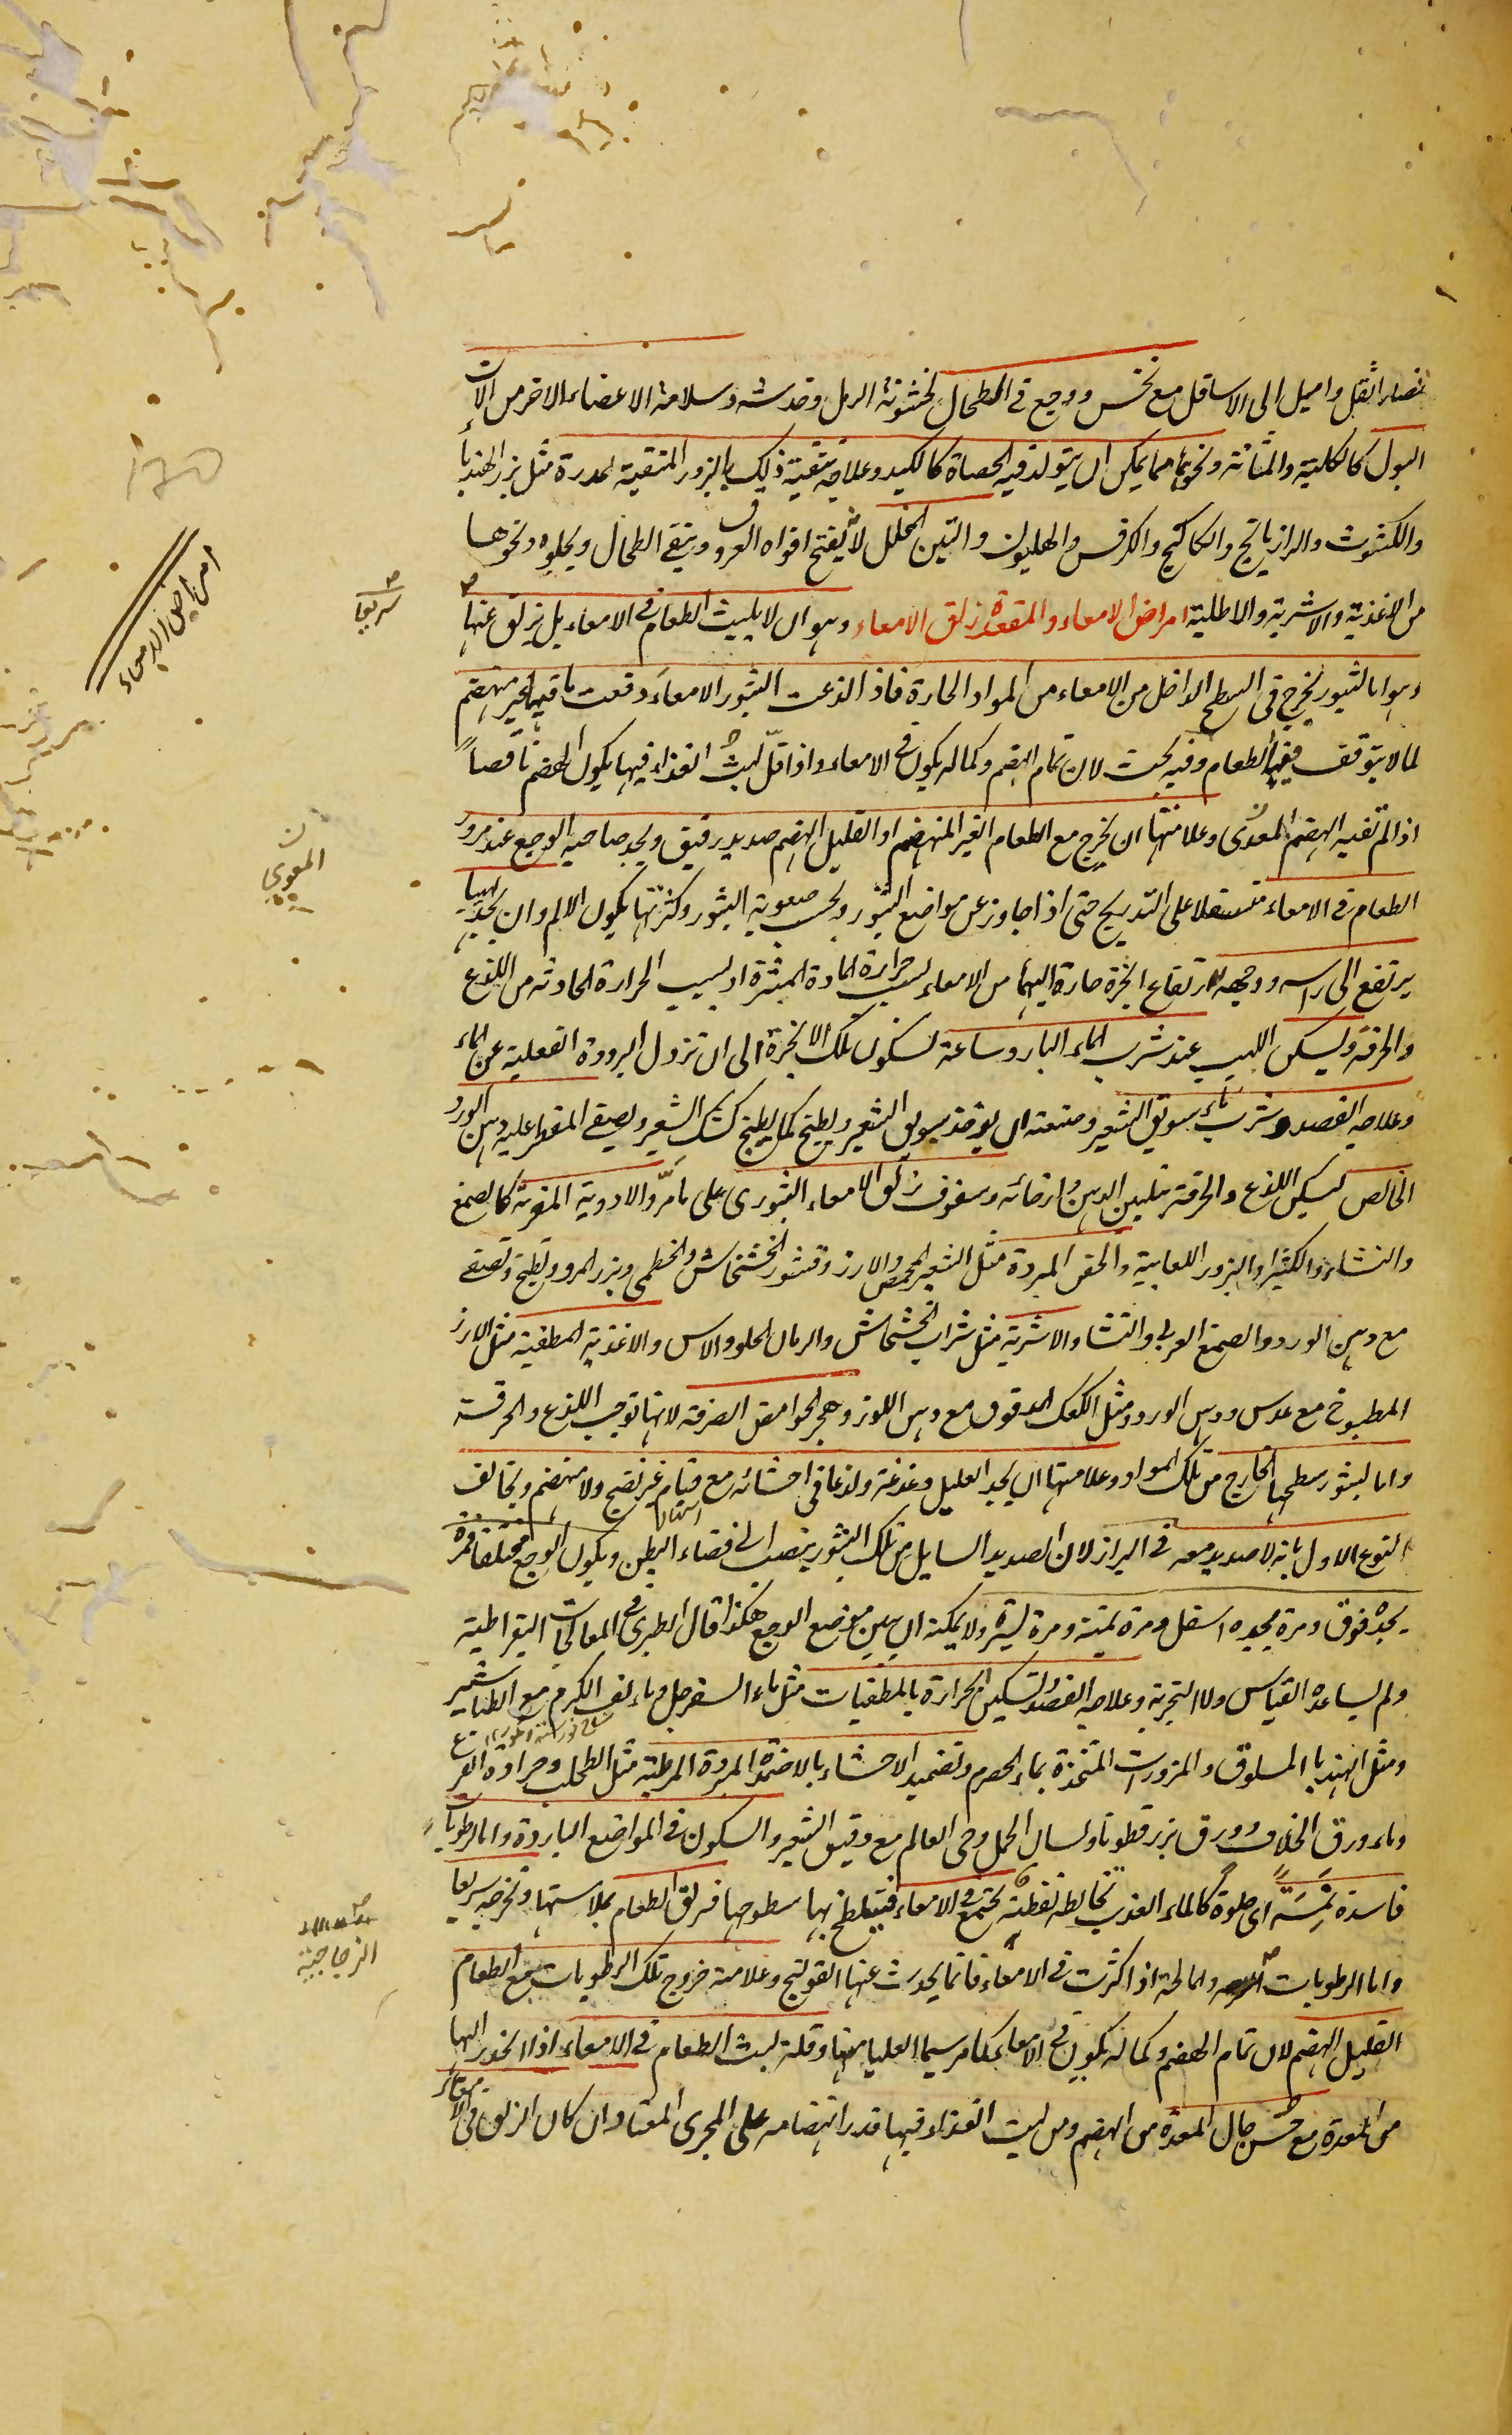 فصار اثقل واميل الى الاسافل مع نخس ووجع فى الطحال لخشونة الرمل وخدشه وسلامة الاعضاء الاخر من الات
البول كالكلية والمثانة ونحوهما مما يمكن ان يتولد فيه الحصاة كالكبد وعلاجه تنقية ذلك بالبزور المنقية المدرة مثل بزر الهندبا
والكشوث والرازيانج والكاكنج والكرفس والهليون والتين المخلل لانه يفتح افواه العروق وينقى الطحال ويجلوه ونحوها
من الاغذية والاشربة والاطلية امراض الامعاء والمقعدة زلق الامعاء وهو ان لا يلبث الطعام فى الامعاء بل يزلق عنها
سريعا
امراض الامعاء
وهو اما لبثور يخرج فى السطح الداخل من الامعاء من المواد الحارة فاذا لذعت البثور الامعاء دفعت ما فيها غير منهضم
لما لا يتوقف فيها الطعام وفيه بحث لان تمام الهضم وكماله يكون فى الامعاء واذا قل لبث الغذاء فيها يكون الهضم ناقصاً
اذ لم تفيه الهضم المعدى وعلامتها ان يخرج مع الطعام الغير المنهضم او القليل الهضم صديد رقيق ويجد صاحبه الوجع عند مرور
المعوى
الطعام فى الامعاء متسفلا على التدريج حتى اذا جاوز عن مواضع البثور وبحسب صعوبة البثور وكثرتها يكون الالم وان يجد لهيبا
يرتفع الى راسه ووجهه لارتفاع ابخرة حارة اليهما من الامعاء لسبب حرارة المادة المبثرة او لسبب الحرارة الحادثة من اللذع
والحرقة ويسكن اللهيب عند شرب الماء البارد ساعة لسكون تلك الابخرة الى ان تزول البرودة الفعلية عن الماء
وعلاجه الفصد وشرب ماء سويق الشعير وصنعته ان يوخذ سويق الشعير ويطبخ كما يطبخ كشك الشعير ويصفى المقطر عليه دهن الورد
الخالص ليسكن اللذع والحرقة بتليين الدهن وارخائه وسفوف زلق الامعاء البثورى على ما مرّ والادوية المغرية كالصمغ
والنشاء والكثيرا والبزور اللعابية والحقن المبردة مثل الشعير المحمص والارز وقشور الخشخاش والخطمى وبزر المرو ويطبخ وتصفى
مع دهن الورد والصمغ العربى والنشا والاشربة مثل شراب الخشخاش والرمان الحلو والاس والاغذية المطفية مثل الارز
المطبوخ مع عدس ودهن الورد ومثل الكعك المدقوق مع دهن اللوز وهجر الحوامض الصرفة لانها توجب اللذع والحرقة
واما لبثور سطحها الخارج من تلك المواد وعلامتها ان يجد العليل دغدغة ولذعا فى احشائه مع قيام غير نضج ولا منهضم ويخالف
النوع الاول بانه لا صديد معه فى البراز لان الصديد السايل من تلك البثور ينصب الى فضاء البطن ويكون الوجع مختلفا فمرة
يجده فوق ومرة يجده اسفل ومرة يمنة ومرة يسرة ولا يمكنه ان يبين موضع الوجع هكذا قال الطبرى فى المعالجات البقراطية
ولم يساعده القياس ولا التجربة وعلاجه الفصد وتسكين الحرارة بالمطفيات مثل ماء السفرجل وماء لف الكرم مع الطباشير
ومثل الهندبا المسلوق والمزورات المتخذة بماء الحصرم وتضميد الاحشاء بالاضمدة المبردة المرطبة مثل الطحلب وجرادة القرع
وماء ورق الخلاف وورق بزرقطونا ولسان الحمل وحى العالم مع دقيق الشعير والسكون فى المواضع الباردة واما لرطوبات
فاسدة تمسّة اى حلوة كالماء العذب يخالطه تفطنة يجتمع فى الامعاء فيتلطخ بها سطوحها فيزلق الطعام بملاستها وتخرجه سريعا
واما الرطوبات والمالحة اذا كثرت فى الامعاء فانما يحدث عنها القولنج وعلامته خروج تلك الرطوبات مع الطعام
الزجاجية
القليل الهضم لان تمام الهضم وكماله يكون فى الامعاء كما مر سيما العليا منها وقلة لبث الطعام فى الامعاء اذا انحدر اليها
من المعدة مع حسن حال المعدة من الهضم ومن لبث الغذاء فيها قدر انهضامه على المجرى المعتاد وان كان الزلق فى الامعاء